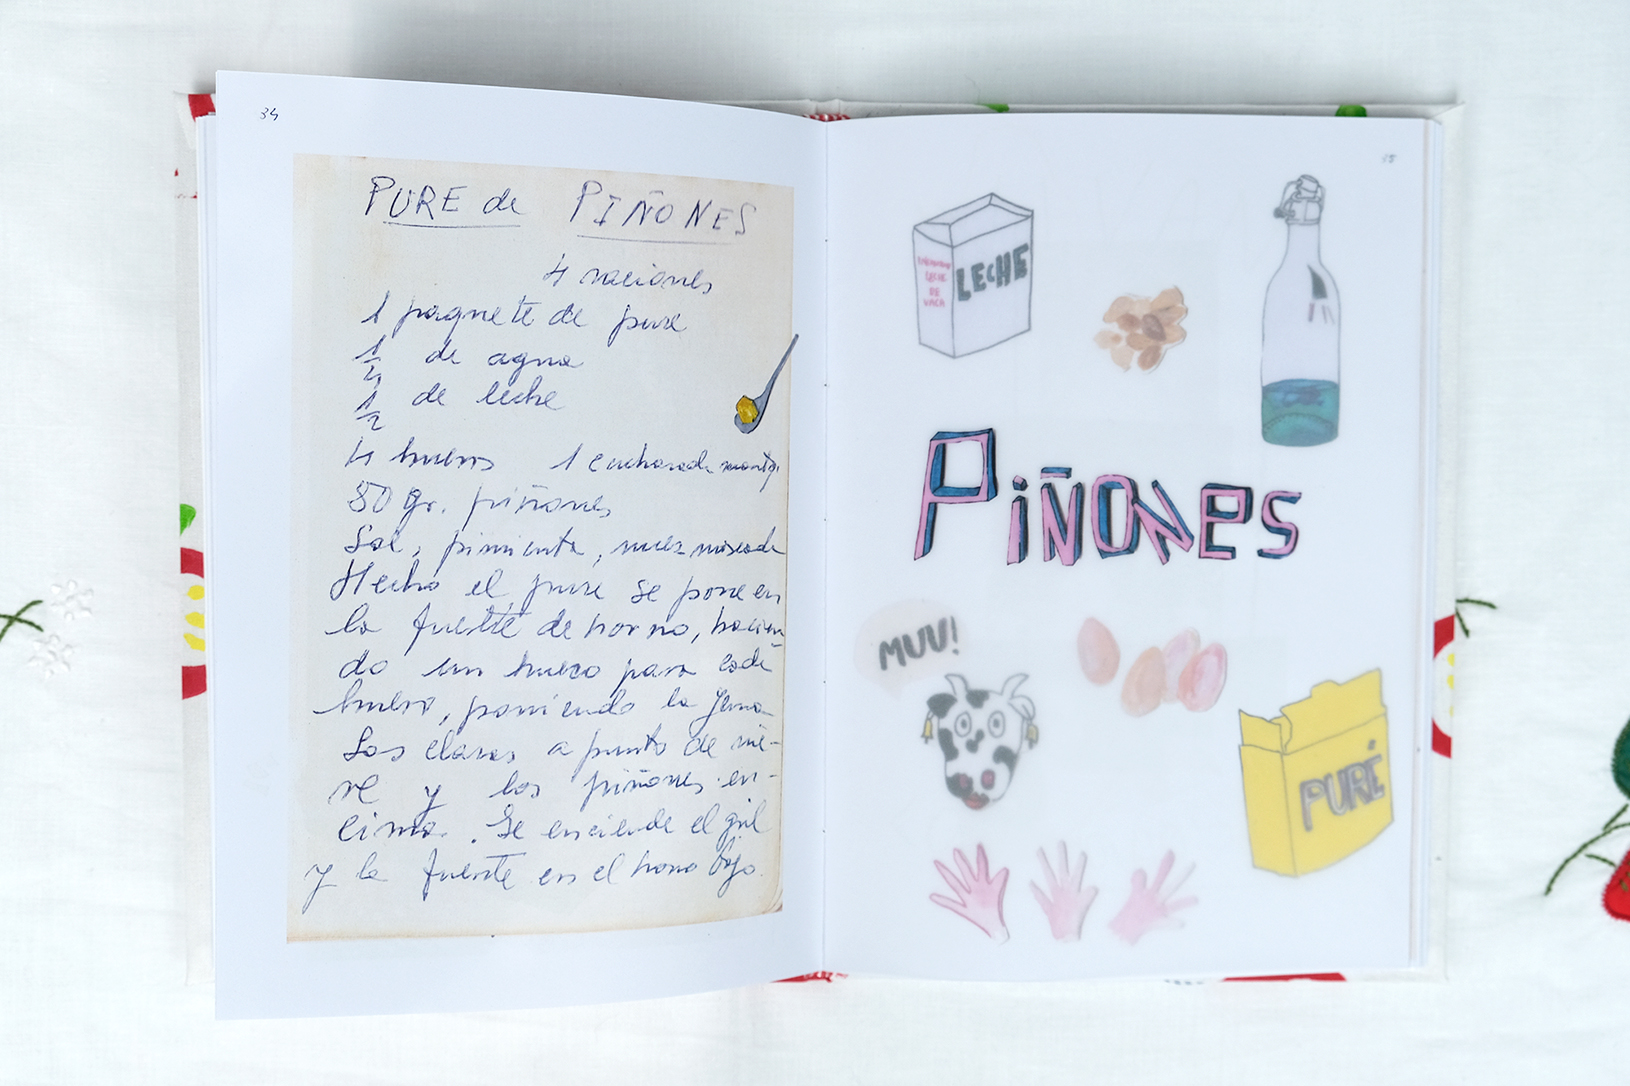 34
PURE de PIÑONES
4 raciones
1 paquete de pure
1/4 de agua
1/2 de leche
4 huevos 1 cucharada
50 gr. piñones
Sal, pimienta, nuez moscada
Hecho el pure se pone en
la fuente de horno, hacien
do un hueco para cada
huevo, poniendo la yema
Las claras a punto de nie-
ve y los piñones en-
cima. Se enciende el gril
y la fuente en el horno bajo.
LECHE
LECHE
DE
VACA
PIÑONES
MUU!
PURÉ